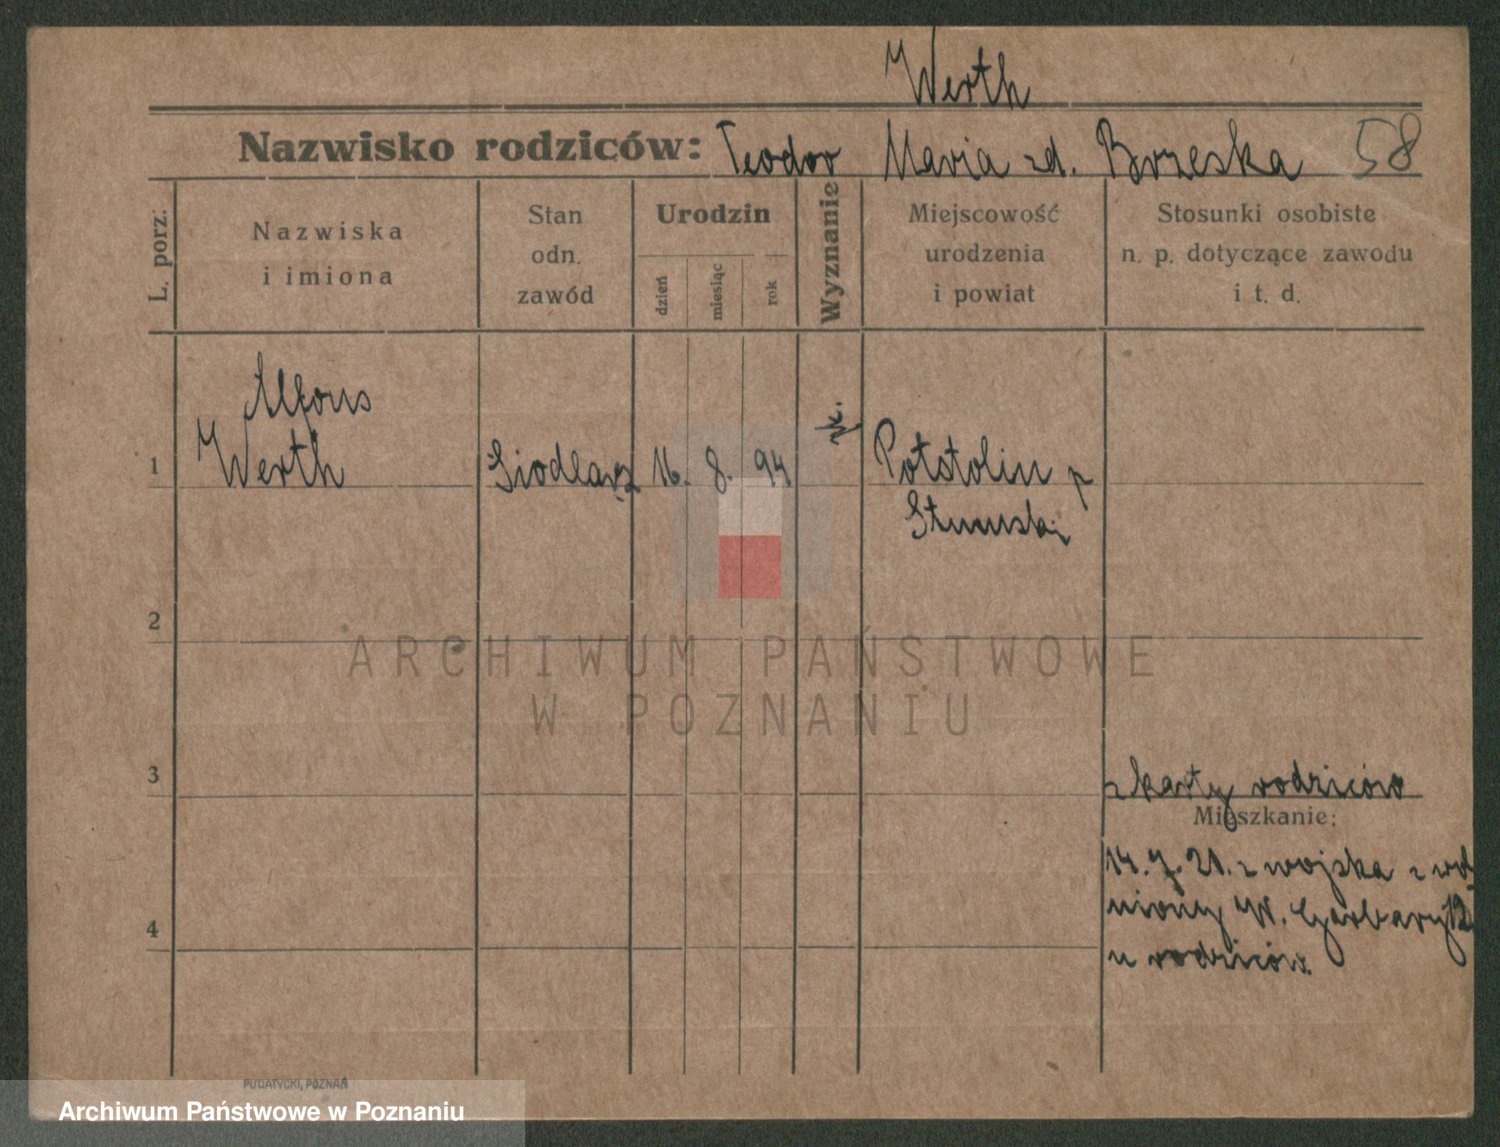 Werth
Nazwisko rodziców: Teodor Maria zd. Brzeska 58
L. porz:
Nazwiska
i imiona
Stan
odn.
zawód
Urodzin
dzień
miesiąc
rok
Wyznanie
Miejscowość
urodzenia
i powiat
Stosunki osobiste
n. p. dotyczące zawodu
i t. d.
Alfons
1 Werth Siodlarz 16. 8. 94 rk. Potstolin p
2
3
z karty rodziców
Mieszkanie:
14. 7. 21. z wojska
4
W. Garbary 12
u rodziców.
ARCHIWUM PAŃSTWOWE
W POZNANIU
PUTIATYCKI, POZNAŃ
Archiwum Państwowe w Poznaniu